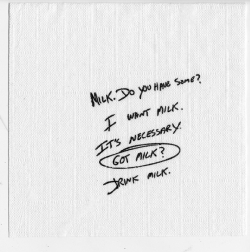 MILK. DO YOU HAVE SOME?
I WANT MILK.
IT'S NECESSARY.
GOT MILK?
DRINK MILK.